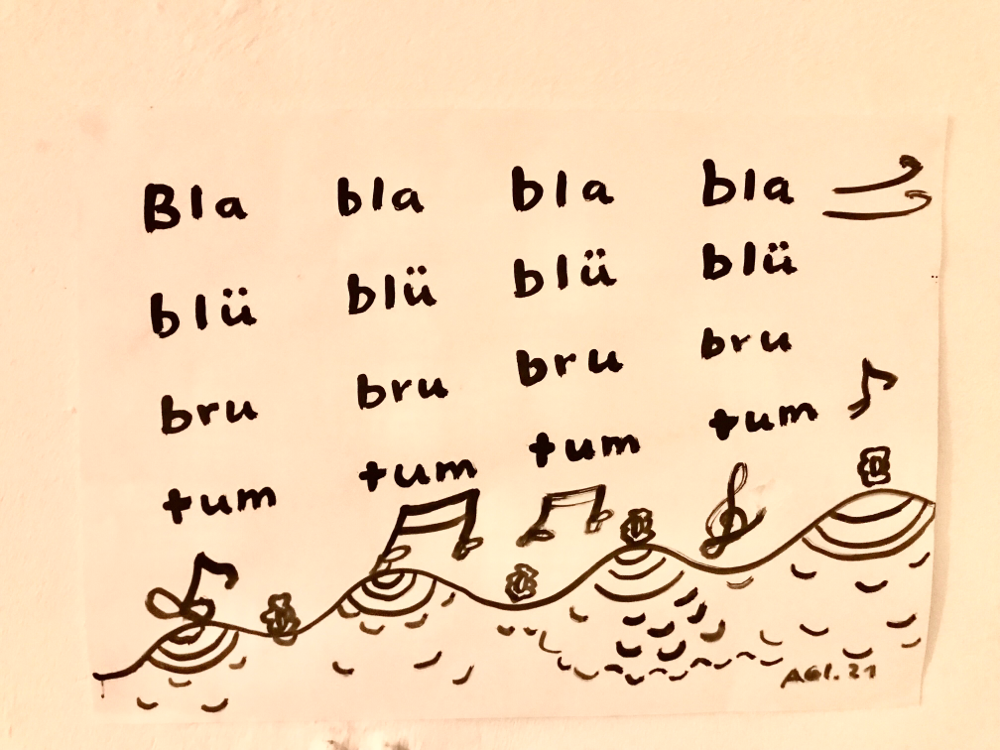 Bla bla bla bla
blü blü blü blü
bru bru bru bru
tum tum tum tum